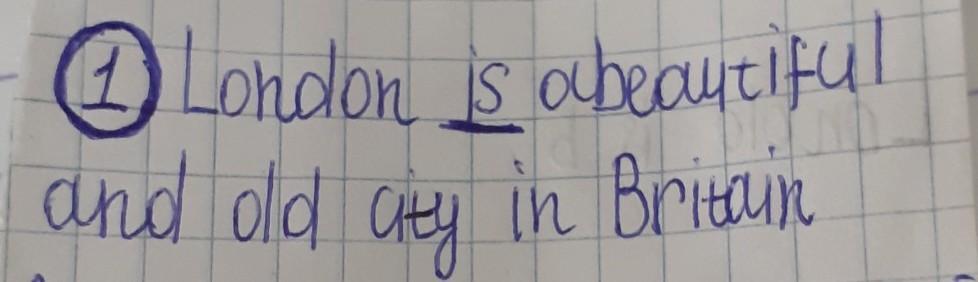 1 London is a beautiful
and old city in Britain